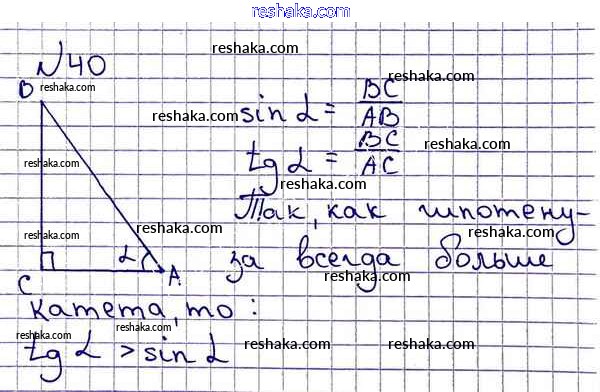 reshaka.com
№40
reshaka.com
B
reshaka.com
reshaka.com
sin α = BC/AB
reshaka.com
reshaka.com
tg α = BC/AC
reshaka.com
reshaka.com
Так, как гипотену-
reshaka.com
reshaka.com
reshaka.com
α
за всегда больше
C
A
reshaka.com
катета, то:
reshaka.com
tg α > sin α
reshaka.com
reshaka.com
reshaka.com